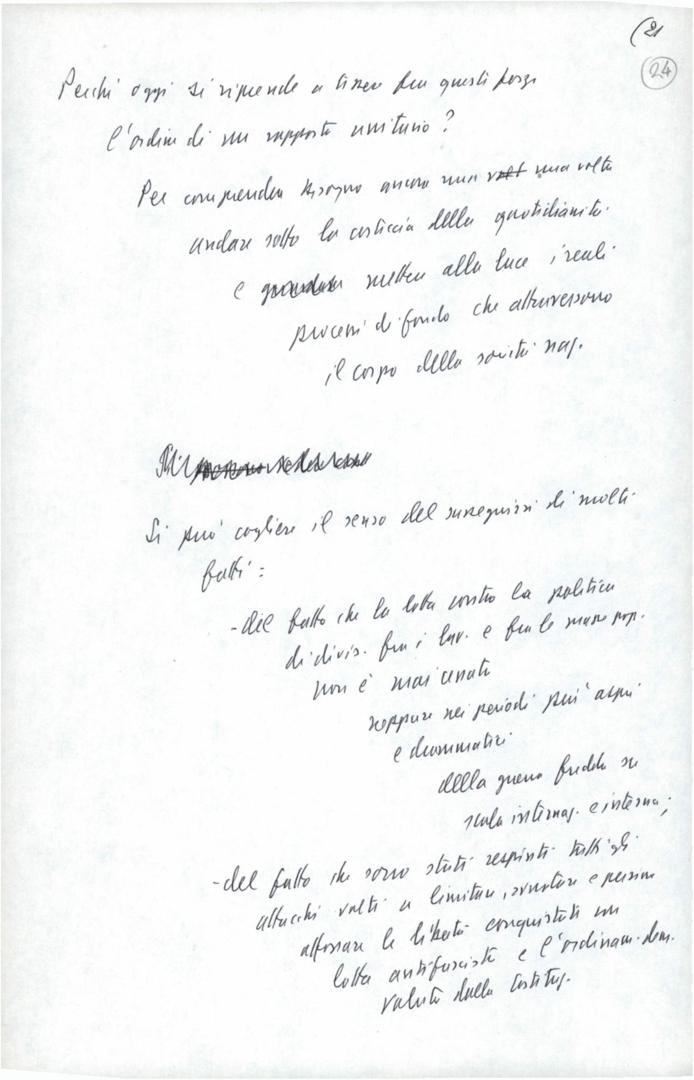 (21
24
Perché oggi si riprende a tesser fra queste forze
l'ordine di un rapporto unitario?
Per comprender bisogna ancora una volt una volta
andare sotto la crosticcia della quotidianità
e metter alla luce i reali
processi di fondo che attraversano
il corpo della società naz.
Si può cogliere il senso del susseguirsi di molti
fatti:
-del fatto che la lotta contro la politica
di divis. fra i lav. e fra le masse pop.
non è mai cessata
neppure nei periodi più aspri
e drammatici
della guerra fredda su
scala internaz. e interna;
-del fatto che sono stati respinti tutti gli
attacchi volti a limitare, svuotare e persino
affossare le libertà conquistate con
lotta antifascista e l'ordinam. dem.
voluto dalla Costituz.